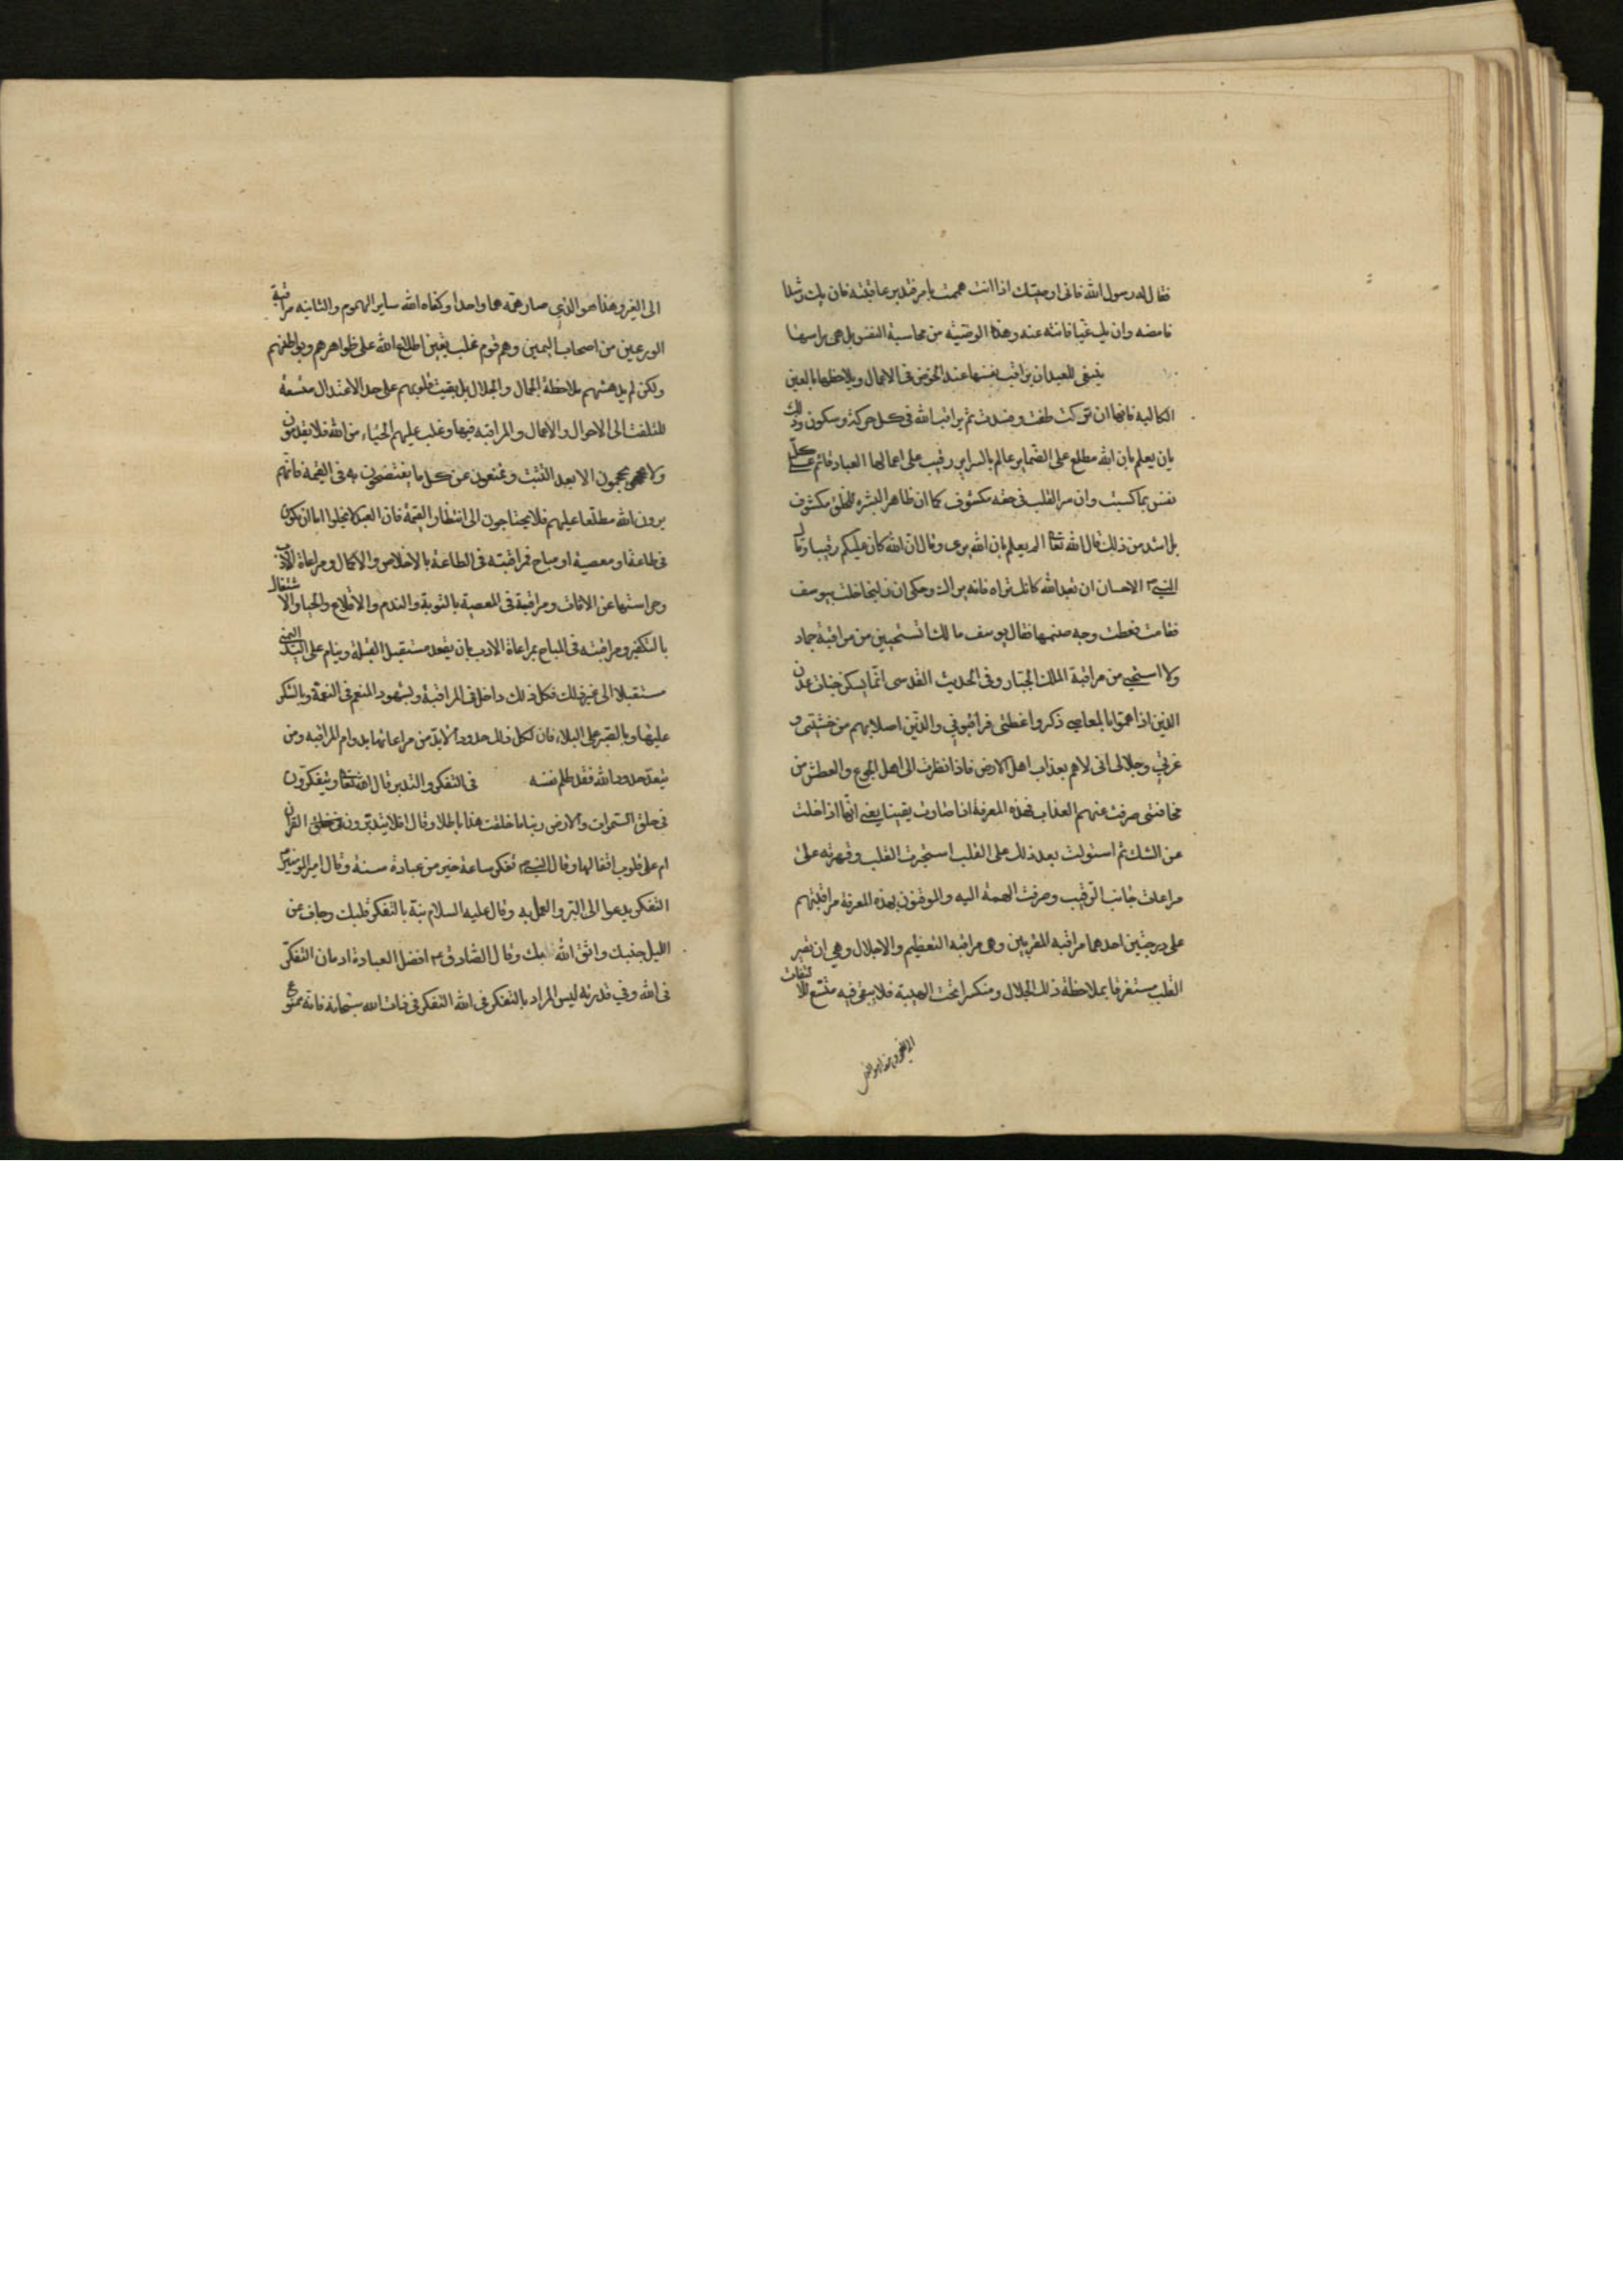 فقال له رسول الله فانی اوصیك اذا انت هممت بامر فتدبر عاقبته فان یك رشدا
فامضه وان یك غیا فانته عنه وهذه الوصیة من محاسبة النفس بل هی براسها
ینبغی للعبد ان یراقب نفسها عند الخوض فی الاعمال ویلاحظها بالعین
الکالیة فانها ان ترکت طغت وفسدت ثم یراقب الله فی کل حرکة وسکون وذلك
بان یعلم بان الله مطلع علی الضمایر عالم بالسرایر رقیب علی اعمال العباد قائم علی کل
نفس بما کسبت وان سر القلب فی حقه مکشوف کما ان ظاهر البشرة للخلق مکشوف
بل اشد من ذلك قال الله تعا الم یعلم بان الله یری وقال ان الله کان علیکم رقیبا وقال
النبی ص الاحسان ان تعبد الله کانك تراه فانه یراك وحکی ان زلیخا خلت بیوسف
فقامت فغطت وجه صنمها فقال یوسف مالك اتستحیین من مراقبة جماد
ولا استحیی من مراقبة الملك الجبار وفی الحدیث القدسی انما یسکن جنات عدن
الذین اذا هموا بالمعاصی ذکروا عظمتی فراقبونی والذین اصلابهم من خشیتی و
عزتی وجلالی انی لاهم بعذاب اهل الارض فاذا نظرت الی اهل الجوع والعطش من
مخافتی صرفت عنهم العذاب فهذه المعرفة اذا صارت یقینا یعنی انها اذا خلت
عن الشك ثم استولت بعد ذلك علی القلب استجرت القلب وقهرته علی
مراعات جانب الرقیب وصرفت الهمة الیه والموقنون بهذه المعرفة مراقبتهم
علی درجتین احدهما مراقبة المقربین وهی مراقبة التعظیم والاجلال وهی ان تصیر
القلب مستغرقا بملاحظة ذلك الجلال ومنکسرا تحت الهیبة فلا یبقی فیه متسع للالتفات
الی الغیر وهذا هو الذی
الی الغیر وهذا هو الذی صار همه هما واحدا وکفاه الله سایر الهموم والثانیه مراقبة
الورعین من اصحاب الیمین وهم قوم غلب یقین اطلاع الله علی ظواهرهم وبواطنهم
ولکن لم یدهشهم ملاحظة الجمال والجلال بل بقیت قلوبهم علی حد الاعتدال متسعة
للتلفت الی الاحوال والاعمال والمراقبه فیها وغلب علیهم الحیاء من الله فلا یقدمون
ولا یحجمون الا بعد التثبت ویمتنعون عن کل ما یفتضحون به فی القیمة فانهم
یرون الله مطلعا علیهم فلا یحتاجون الی انتظار القیمة فان العبد لا یخلوا اما ان یکون
فی طاعة او معصیة او مباح فمراقبته فی الطاعة بالاخلاص والاکمال ومراعاة الادب
وحراستها عن الافات ومراقبة فی المعصیة بالتوبة والندم والاقلاع والحیا والاشتغال
بالتکفیر ومراقبته فی المباح بمراعاة الادب بان یقعد مستقبل القبلة وینام علی الید الیمنی
مستقبلا الی غیر ذلك فکل ذلك داخل فی المراقبة وبشهود المنعم فی النعمة وبالشکر
علیها وبالصبر علی البلاء فان لکل ذلك حدودا لا بد من مراعاتها بدوام المراقبه ومن
یتعد حدود الله فقد ظلم نفسه فی التفکر والتدبر قال الله تعا ویتفکرون
فی خلق السموات والارض ربنا ما خلقت هذا باطلا وقال افلا یتدبرون القران
ام علی قلوب اقفالها وقال النبی ص تفکر ساعة خیر من عبادة سنة وقال امیر المؤمنین ع
التفکر یدعوا الی البر والعمل به وقال علیه السلام نبه بالتفکر قلبك وجاف عن
اللیل جنبك واتق الله ربك وقال الصادق ع افضل العبادة ادمان التفکر
فی الله وفی قدرته لیس المراد بالتفکر فی الله التفکر فی ذات الله سبحانه فانه ممنوع